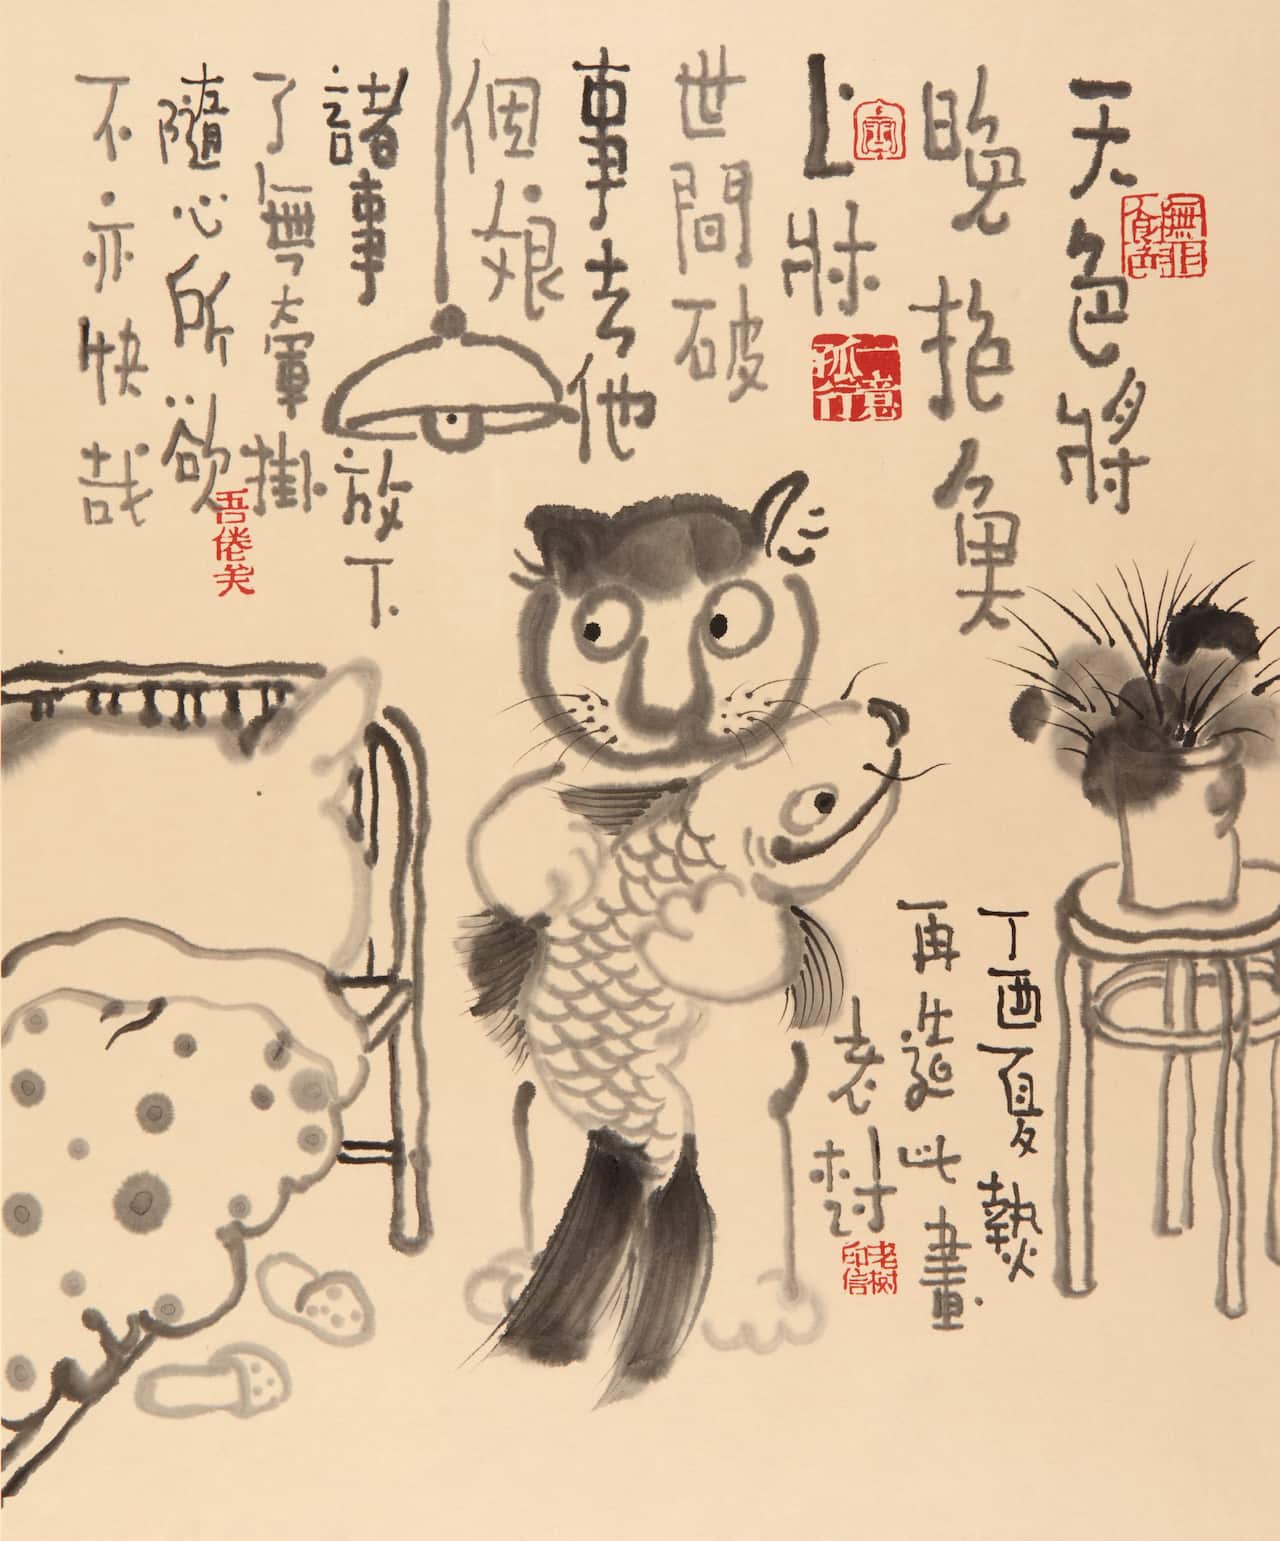 天色將
晚抱魚
上牀
世間破
事去他
個娘
諸事放下
了無牽掛
隨心所欲
不亦快哉
無非食色
一意孤行
吾倦矣
丁酉夏熱
再造此畫
老樹
老树印信